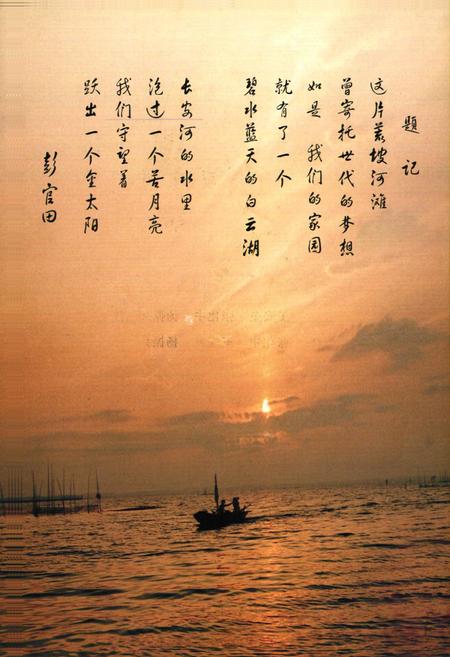 题记
这片荒坡河滩
曾寄托世代的梦想
如是 我们的家园
就有了一个
碧水蓝天的白云湖
长安河的水里
泡过一个苦月亮
我们守望着
跃出一个金太阳
彭官田